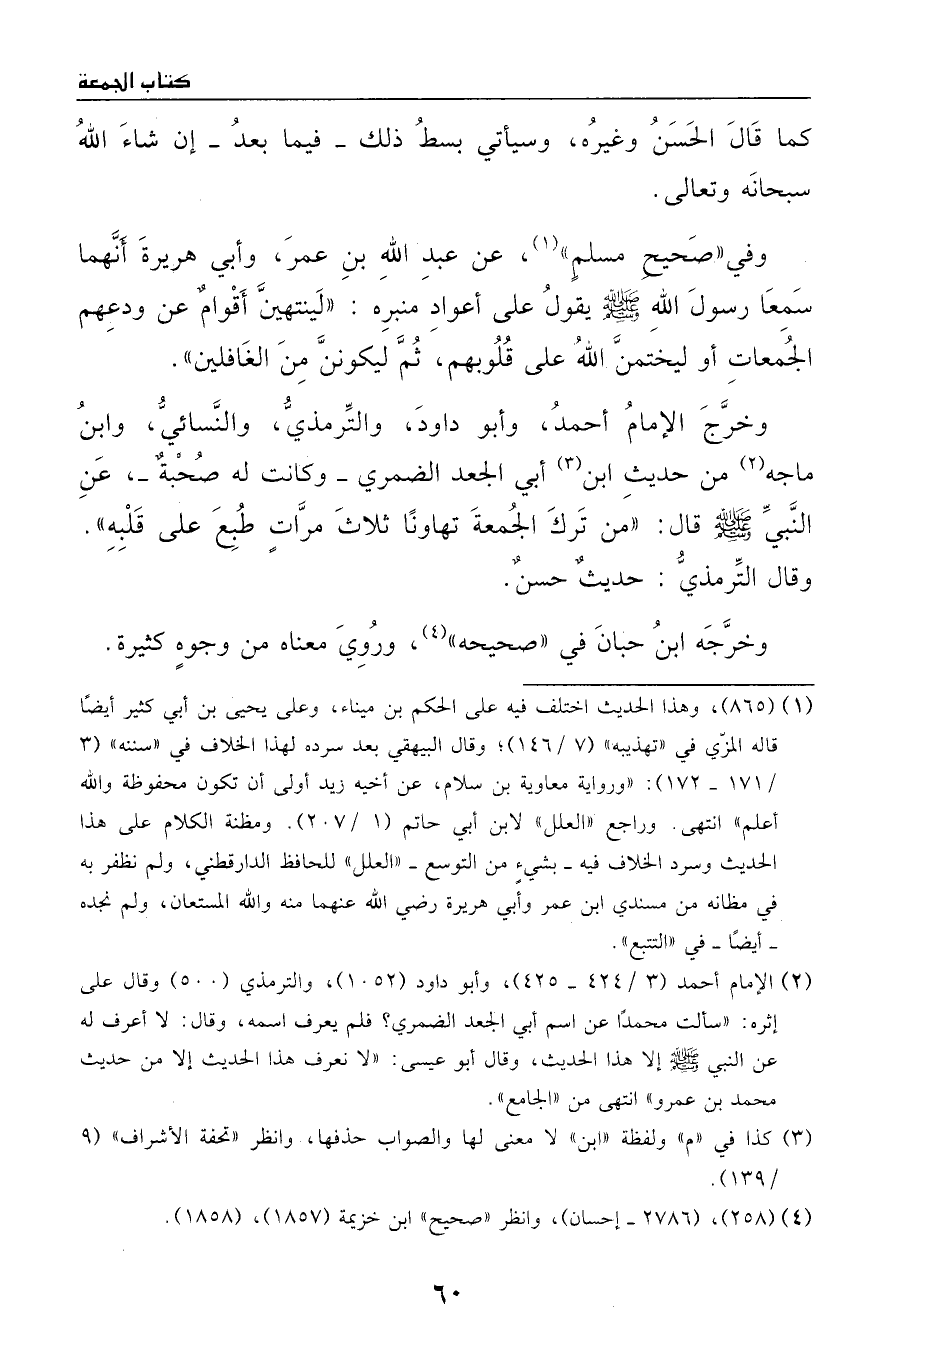 كتاب الجمعة
كما قَالَ الحَسَنُ وغيرُه، وسيأتي بسطُ ذلك ـ فيما بعدُ ـ إن شاءَ اللهُ
سبحانَه وتعالى.
وفي«صَحيحِ مسلمٍ»(١)، عن عبدِ اللهِ بنِ عمرَ، وأبي هريرةَ أنَّهما
سَمِعَا رسولَ اللهِ ﷺ يقولُ على أعوادِ منبرِه : «لَينتهينَّ أقْوامٌ عن ودعِهم
الجُمعاتِ أو ليختمنَّ اللهُ على قُلُوبهم، ثُمَّ ليكوننَّ مِنَ الغَافلين».
وخرَّجَ الإمامُ أحمدُ، وأبو داودَ، والتِّرمذيُّ، والنَّسائيُّ، وابنُ
ماجه(٢) من حديثِ ابن(٣) أبي الجعد الضمري ـ وكانت له صُحْبةٌ ـ، عَنِ
النَّبيِّ ﷺ قال: «من تَركَ الجُمعةَ تهاونًا ثلاثَ مرَّاتٍ طُبِعَ على قَلْبِهِ».
وقال التِّرمذيُّ : حديثٌ حسنٌ.
وخرَّجَه ابنُ حبانَ في «صحيحه»(٤)، ورُوِيَ معناه من وجوهٍ كثيرة.
(١) (٨٦٥)، وهذا الحديث اختلف فيه على الحكم بن ميناء، وعلى يحيى بن أبي كثير أيضًا
قاله المزّي في «تهذيبه» (٧ /١٤٦)؛ وقال البيهقي بعد سرده لهذا الخلاف في «سننه» (٣
/١٧١ ـ ١٧٢): «ورواية معاوية بن سلام، عن أخيه زيد أولى أن تكون محفوظة والله
أعلم» انتهى. وراجع «العلل» لابن أبي حاتم (١ /٢٠٧). ومظنة الكلام على هذا
الحديث وسرد الخلاف فيه ـ بشيءٍ من التوسع ـ «العلل» للحافظ الدارقطني، ولم نظفر به
في مظانه من مسندي ابن عمر وأبي هريرة رضي الله عنهما منه والله المستعان، ولم نجده
ـ أيضًا ـ في «التتبع».
(٢) الإمام أحمد (٣ /٤٢٤ ـ ٤٢٥)، وأبو داود (١٠٥٢)، والترمذي (٥٠٠) وقال على
إثره: «سألت محمدًا عن اسم أبي الجعد الضمري؟ فلم يعرف اسمه، وقال: لا أعرف له
عن النبي ﷺ إلا هذا الحديث، وقال أبو عيسى: «لا نعرف هذا الحديث إلا من حديث
محمد بن عمرو» انتهى من «الجامع».
(٣) كذا في «م» ولفظة «ابن» لا معنى لها والصواب حذفها، وانظر «تحفة الأشراف» (٩
/١٣٩).
(٤) (٢٥٨)، (٢٧٨٦ ـ إحسان)، وانظر «صحيح» ابن خزيمة (١٨٥٧)، (١٨٥٨).
٦٠